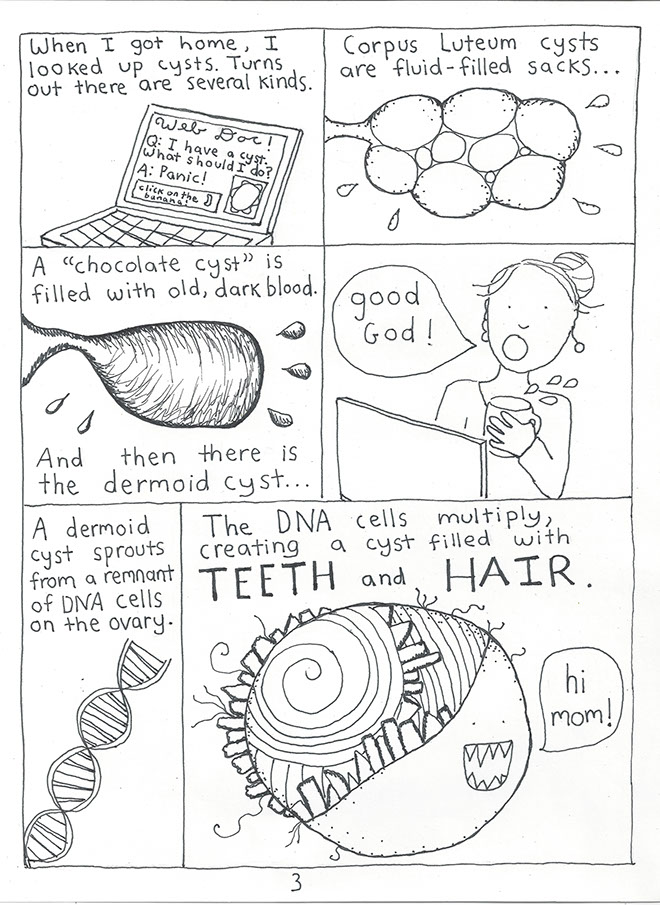 When I got home, I
looked up cysts. Turns
out there are several kinds.
Web Doc!
Q: I have a cyst.
What should I do?
A: Panic!
click on the
banana!
Corpus Luteum cysts
are fluid-filled sacks...
A "chocolate cyst" is
filled with old, dark blood.
And then there is
the dermoid cyst...
good
God!
A dermoid
cyst sprouts
from a remnant
of DNA cells
on the ovary.
The DNA cells multiply,
creating a cyst filled with
TEETH and HAIR.
hi
mom!
3